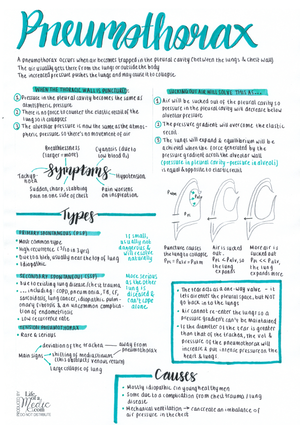 Pneumothorax
A pneumothorax occurs when air becomes trapped in the pleural cavity (between the lungs & chest wall).
The air usually gets there from the lungs or outside the body.
The increased pressure pushes the lungs and may cause it to collapse.
WHEN THE THORACIC WALL IS PUNCTURED:
① Pressure in the pleural cavity becomes the same as
atmospheric pressure.
② There is no force to counter the elastic recoil of the
lung so it collapses
③ The alveolar pressure is now the same as the atmos-
pheric pressure, so there's no movement of air
SUCKING OUT AIR WILL SOLVE THIS AS...
① Air will be sucked out of the pleural cavity so
pressure in the pleural cavity will decrease below
alveolar pressure.
② The pressure gradient will overcome the elastic
recoil.
③ The lung will expand & equilibrium will be
achieved when the force generated by the
pressure gradient across the alveolar wall
(pressure in pleural cavity - pressure in alveoli)
is equal & opposite to elastic recoil
Breathlessness
(larger = more)
Cyanosis (due to
low blood O₂)
Symptoms
Hypotension
Sudden, sharp, stabbing
pain on one side of chest
Pain worsens
on inspiration
Types
PRIMARY SPONTANEOUS (PSP)
Most common type
High recurrence
Due to a bleb, usually near the top of lung
Idiopathic
Is small,
usually not
dangerous &
will resolve
naturally
SECONDARY SPONTANEOUS (SSP)
Due to existing lung disease
sarcoidosis, lung cancer, idiopathic pulm-
onary fibrosis, & an uncommon complica-
tion of endometriosis
Low recurrence rate
More serious
as the other
lung is
diseased &
can't cope
alone
TENSION PNEUMOTHORAX
Rare & serious
Main signs
deviation of the trachea
away from
pneumothorax
shifting of mediastinum
large collapse of lung
Puncture causes
the lung to collapse.
Air is sucked
out. As
the lung
expands
More air is
sucked out.
the lung
expands more
The tear acts as a one-way valve - it
lets air enter the pleural space, but NOT
go back in to the lungs
Air cannot re-enter the lung so a
pressure gradient can't be maintained
If the diameter of the tear is greater
than that of the trachea, the vol &
pressure of the pneumothorax will
increase & put intense pressure on the
heart & lungs
Causes
Mostly idiopathic (in young healthy men)
Some due to a complication from chest trauma / lung
disease
Mechanical ventilation → can create an imbalance of
air pressure in chest
Life
of a
Medic
.com